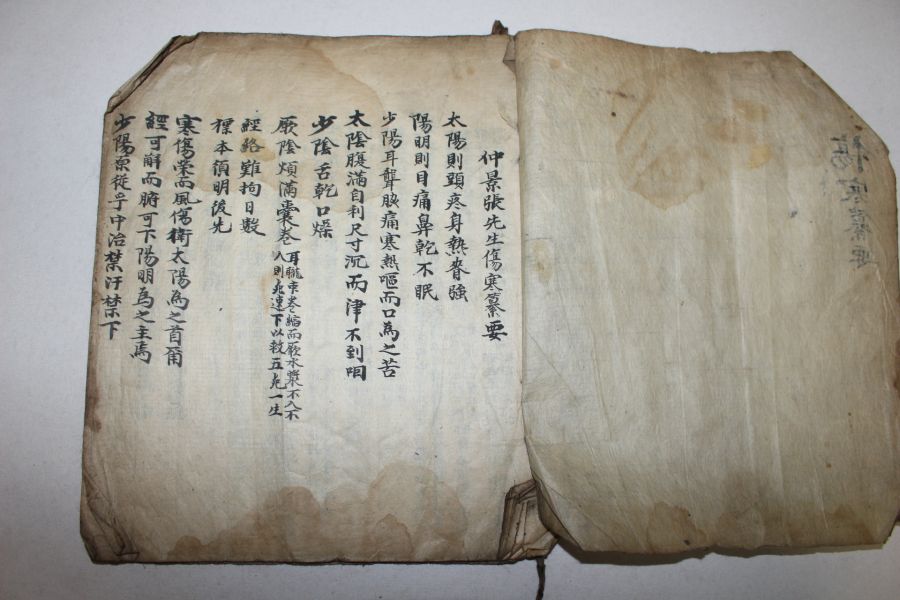 仲景張先生傷寒纂要
太陽則頭疼身熱脊強
陽明則目痛鼻乾不眠
少陽耳聾脇痛寒熱嘔而口為之苦
太陰腹滿自利尺寸沉而津不到咽
少陰舌乾口燥
厥陰煩滿囊卷
耳聾囊卷縮而厥水漿不入不
人則死速下以救五死一生
經絡難拘日數
標本須明後先
寒傷榮而風傷衛太陽為之首爾
經可解而腑可下陽明為之主焉
少陽原從乎中治禁汗禁下